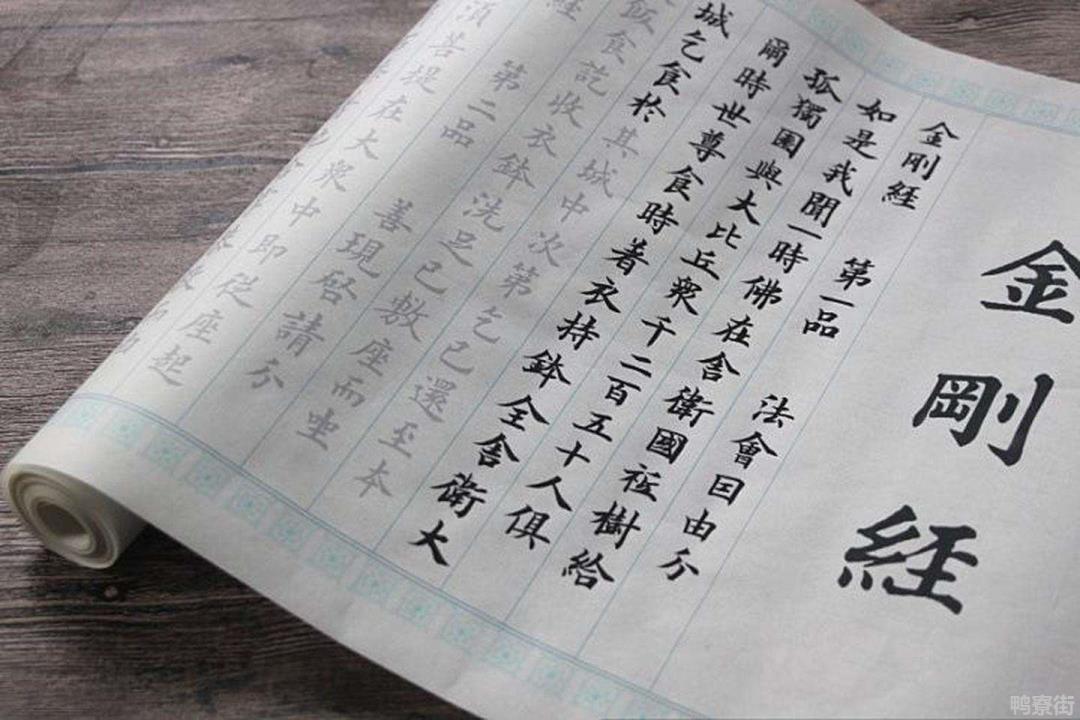 金剛經
金剛經 第一品 法會囙由分
如是我聞一時佛在舍衛國祇樹給
孤獨園與大比丘衆千二百五十人俱
爾時世尊食時著衣持鉢全舍衛大
城乞食於其城中次第乞已還至本
飯食訖收衣鉢洗足已敷座而坐
經 第二品 善現啓請分
須菩提在大衆中即從座起
鸭寮街